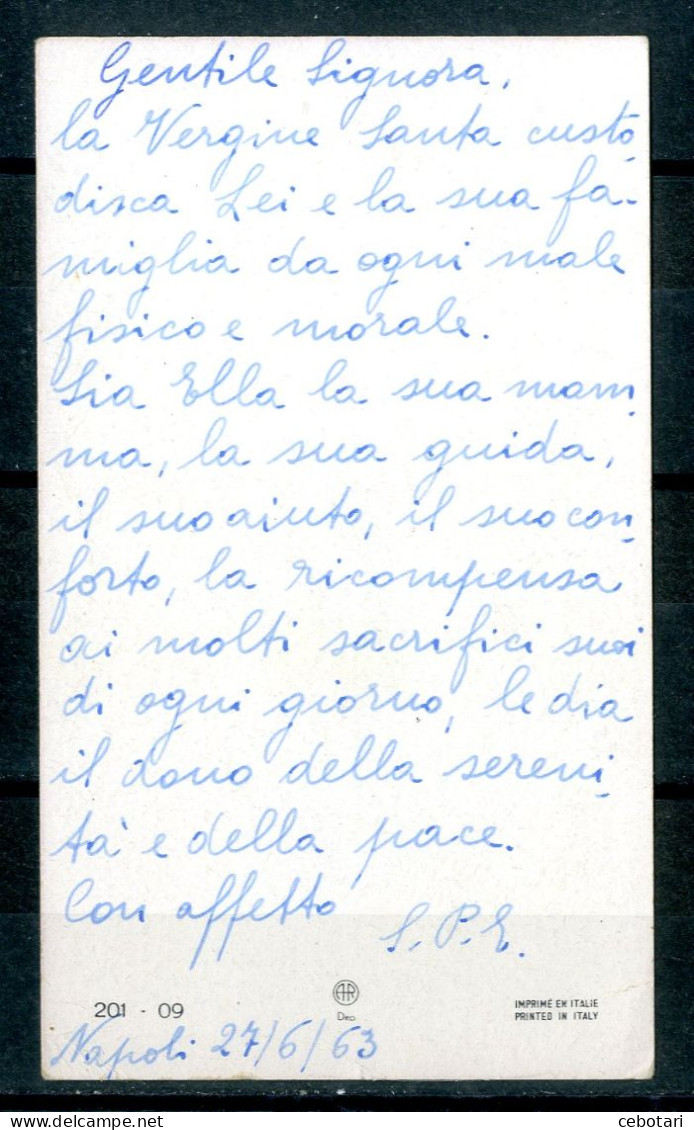 Gentile Signora,
la Vergine Santa custo-
disca Lei e la sua fa-
miglia da ogni male
fisico e morale.
Sia Ella la sua mam-
ma, la sua guida,
il suo aiuto, il suo con-
forto, la ricompensa
ai molti sacrifici suoi
di ogni giorno, le dia
il dono della sereni-
tà e della pace.
Con affetto
S. P. E.
201 - 09
AR
Dep.
IMPRIMÉ EN ITALIE
PRINTED IN ITALY
Napoli 27/6/63
cebotari